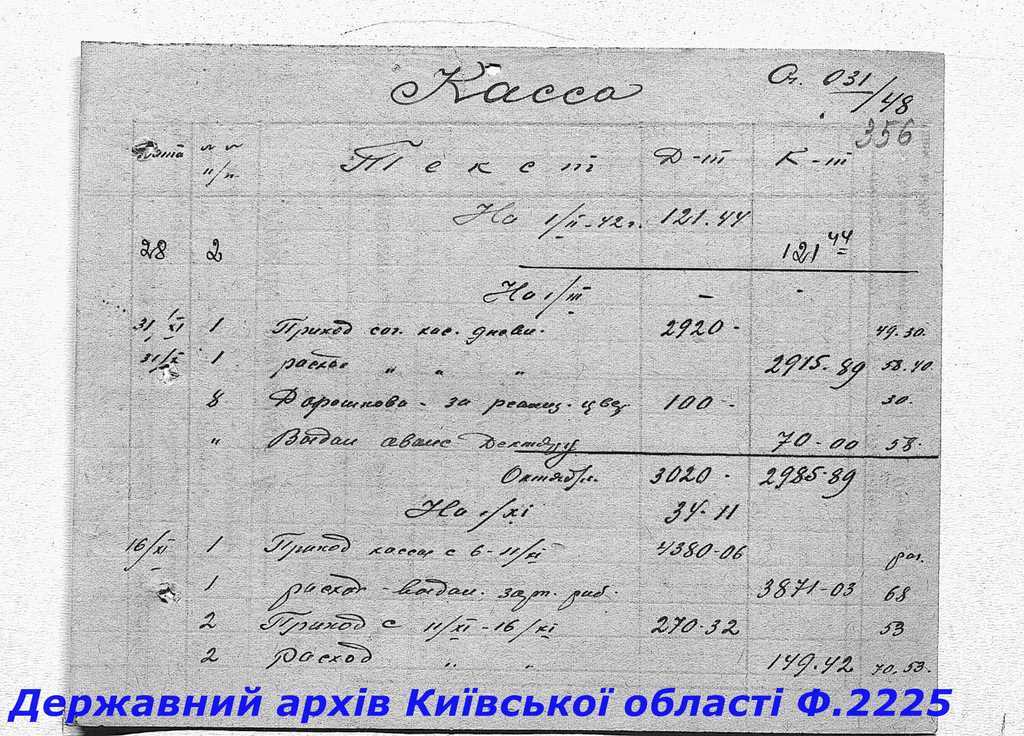 Касса Сч. 031/48
356
Дата №№ п/п Текст Д-т К-т
На 1/II-42г. 121.44
28 2 121 44
На 1/III - -
31/XI 1 Приход сог. кас. дневн. 2920- 49.30.
31/X 1 расход " " " 2915-89 58.40
8 Дорошкова - за реализ. цвет 100- 30.
" Выдан аванс 70-00 58.
Октябрь. 3020- 2985-89
На 1/XI 34-11
16/XI 1 Приход кассы с 6-11/XI 4380-06 раз.
1 расход - выдан. зарп. раб. 3871-03 68
2 Приход с 11/XI-16/XI 270-32 53
2 Расход " " 149.42 70.53.
Державний архів Київської області Ф.2225